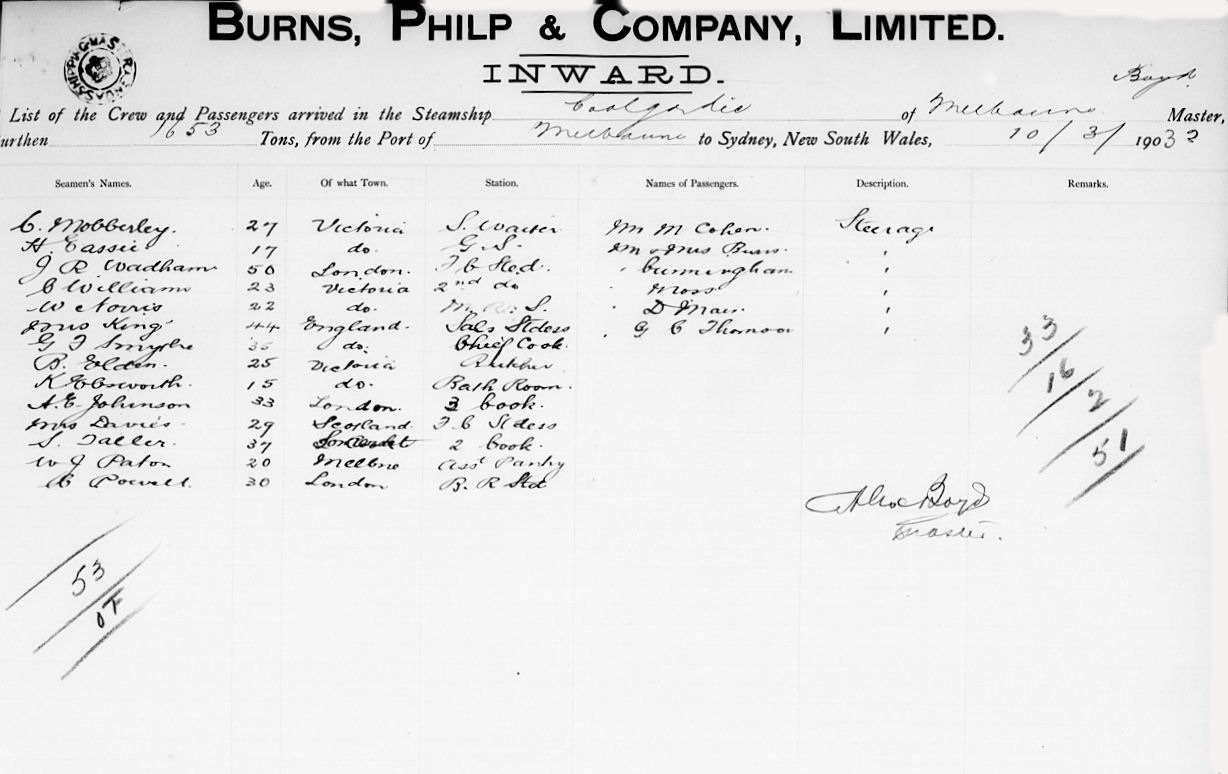 BURNS, PHILP & COMPANY, LIMITED.
INWARD.
Boyd
List of the Crew and Passengers arrived in the Steamship Coolgardie of Melbourne Master,
urthen 1653 Tons, from the Port of Melbourne to Sydney, New South Wales, 10/3/ 1903
Seamen's Names. Age. Of what Town. Station. Names of Passengers. Description. Remarks.
C. Mobberley. 27 Victoria S. Waiter Mr M Cohen. Steerage
H Cassie 17 do. G. S. Mr & Mrs Burns.
J R Wadham 50 London. F C Sted. Cunningham
C Williams 23 Victoria 2nd do Moss
W Norris 22 do. D Mair
Mrs King 44 England. Sals Stdess G C Thomson
G F Smythe 35 do. Chief Cook.
B. Elden. 25 Victoria Butcher
K Ebsworth. 15 do. Bath Room.
A. E. Johnson 33 London. 3 Cook.
Mrs Davies 29 Scotland F C Stdess
S. Taller. 37 2 Cook.
W J Paton 20 Melbne asst Pantry
C Powell. 30 London B. R Std
33
16
2
51
Alex Boyd
Master.
53